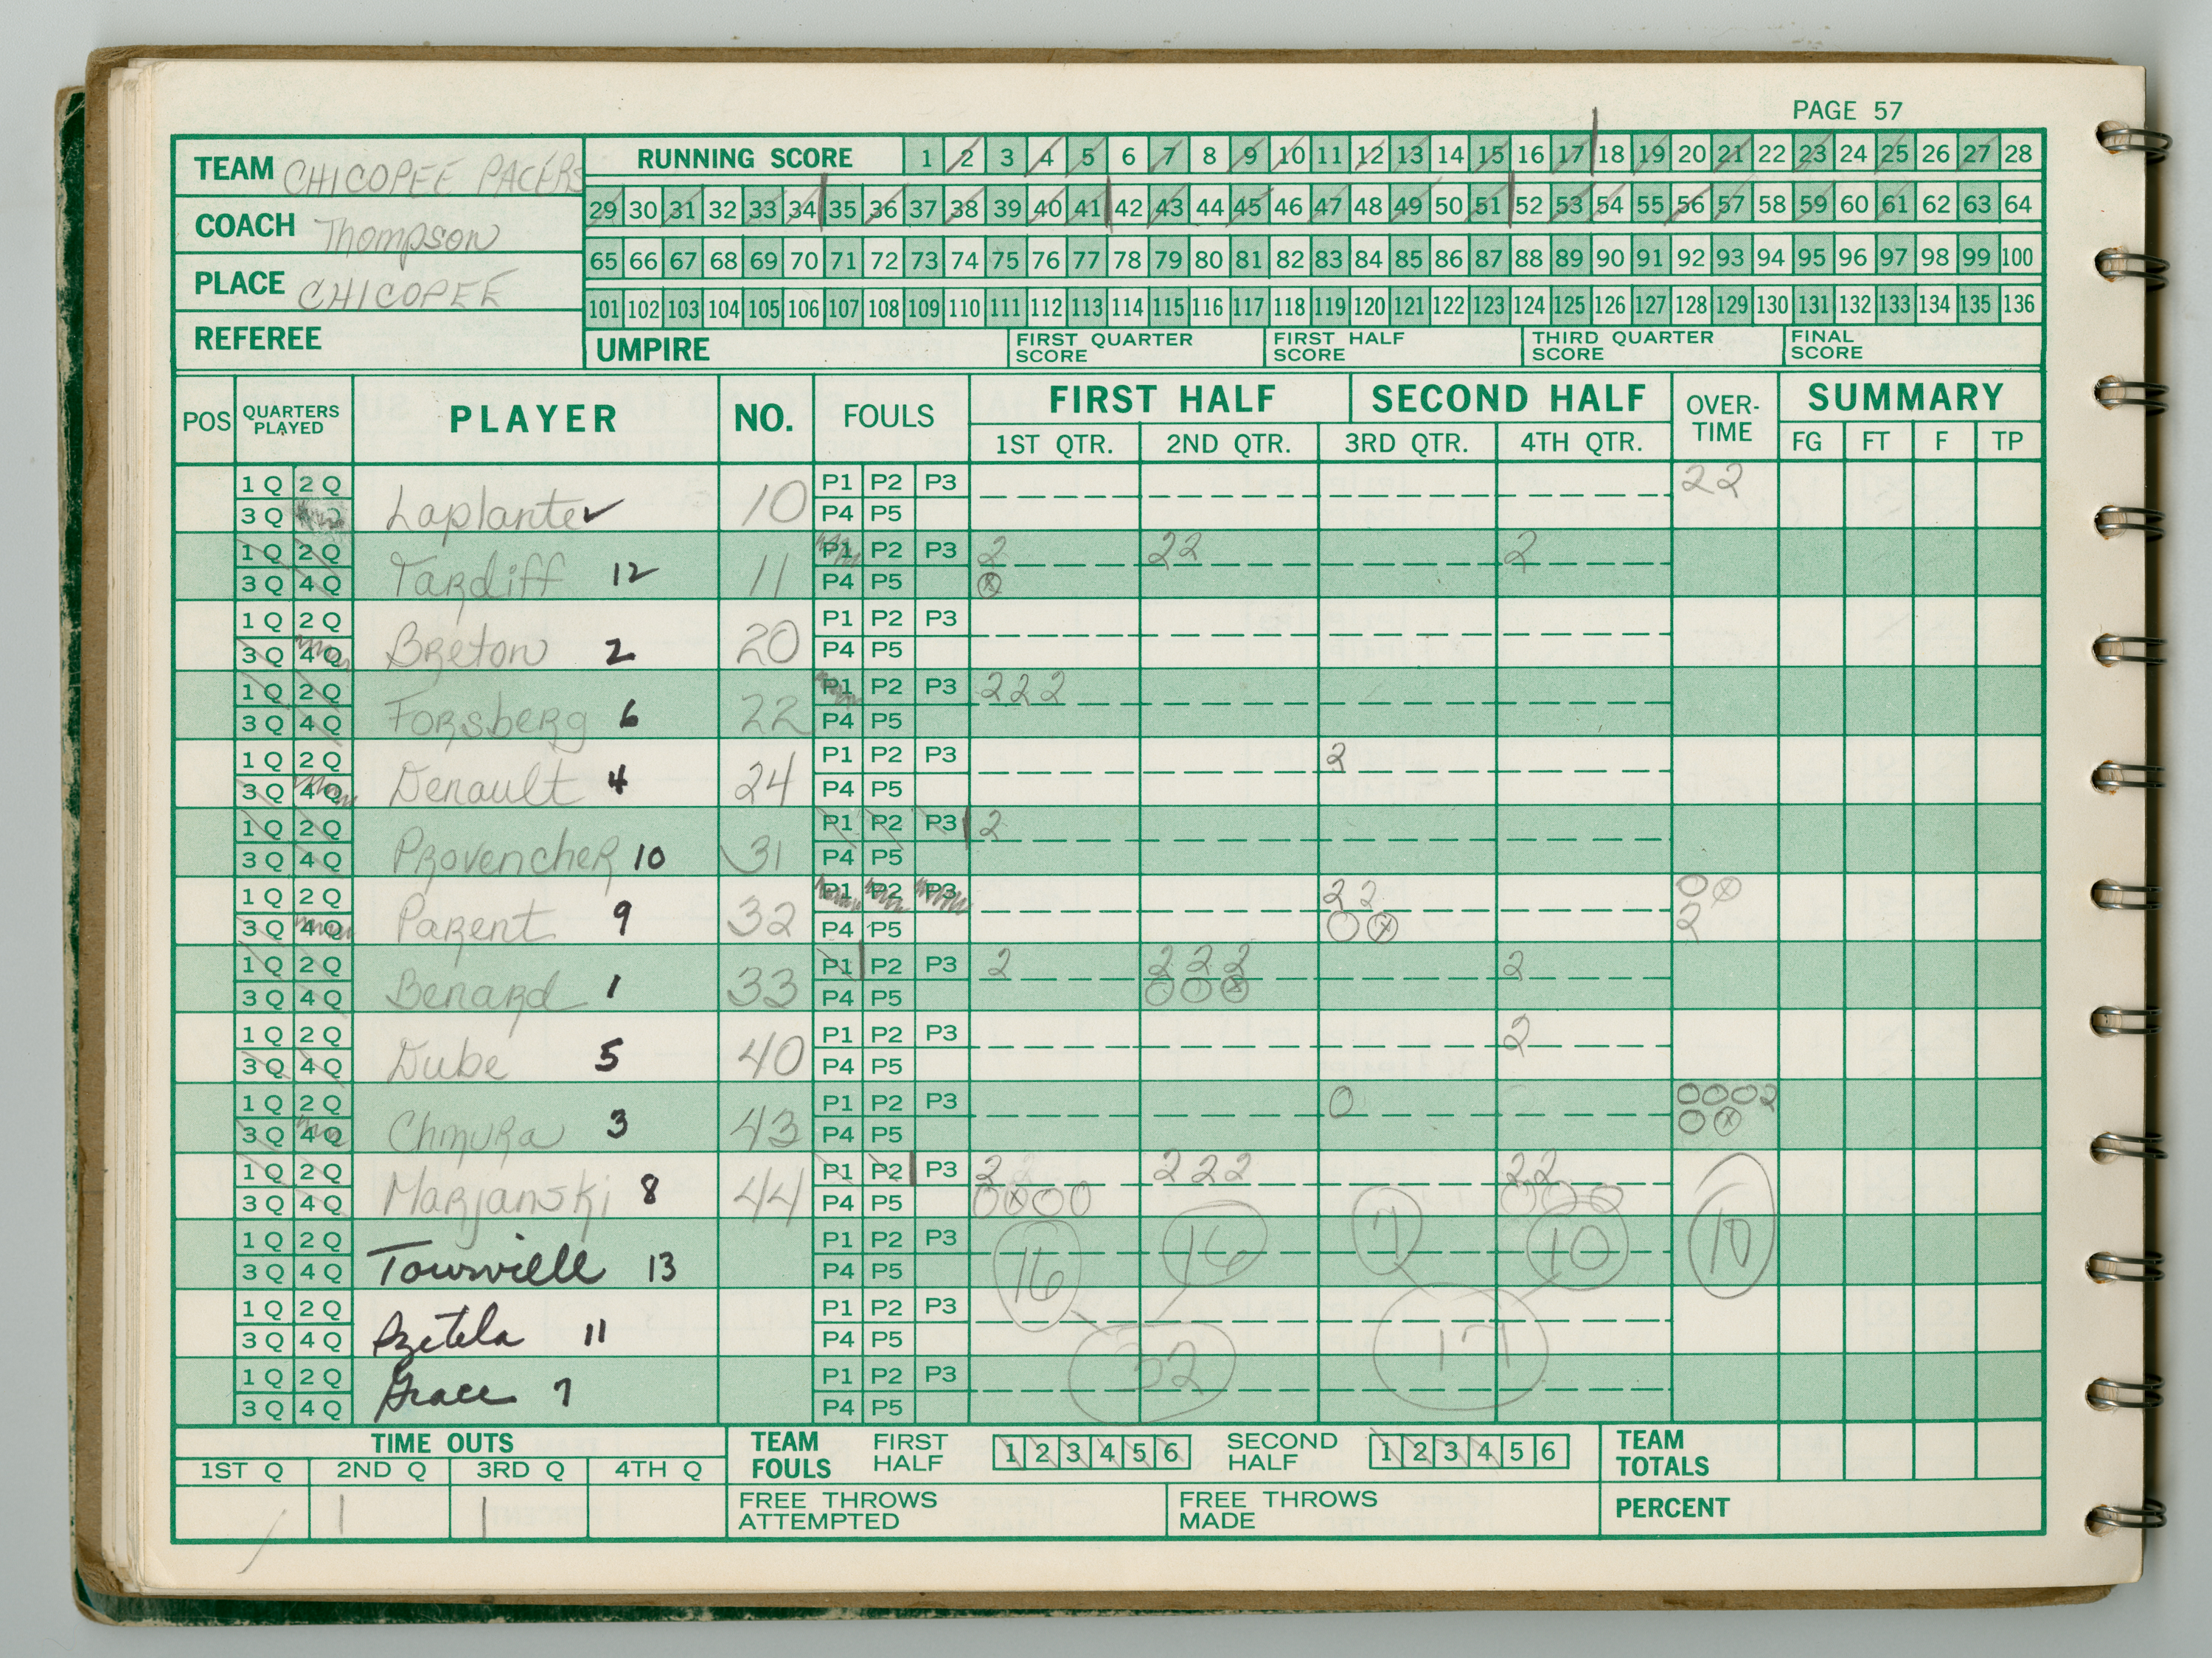 PAGE 57
TEAM CHICOPEE PACERS
COACH Thompson
PLACE CHICOPEE
REFEREE
RUNNING SCORE 1 2 3 4 5 6 7 8 9 10 11 12 13 14 15 16 17 18 19 20 21 22 23 24 25 26 27 28
29 30 31 32 33 34 35 36 37 38 39 40 41 42 43 44 45 46 47 48 49 50 51 52 53 54 55 56 57 58 59 60 61 62 63 64
65 66 67 68 69 70 71 72 73 74 75 76 77 78 79 80 81 82 83 84 85 86 87 88 89 90 91 92 93 94 95 96 97 98 99 100
101 102 103 104 105 106 107 108 109 110 111 112 113 114 115 116 117 118 119 120 121 122 123 124 125 126 127 128 129 130 131 132 133 134 135 136
UMPIRE FIRST QUARTER SCORE FIRST HALF SCORE THIRD QUARTER SCORE FINAL SCORE
POS QUARTERS PLAYED PLAYER NO. FOULS FIRST HALF SECOND HALF OVER-TIME SUMMARY
1ST QTR. 2ND QTR. 3RD QTR. 4TH QTR. FG FT F TP
1Q 2Q P1 P2 P3 22
3Q Laplante 10 P4 P5
1Q 2Q P1 P2 P3 2 22 2
3Q 4Q Tardiff 12 11 P4 P5
1Q 2Q P1 P2 P3
3Q 4Q Breton 2 20 P4 P5
1Q 2Q P1 P2 P3 222
3Q 4Q Forsberg 6 22 P4 P5
1Q 2Q P1 P2 P3 2
3Q 4Q Denault 4 24 P4 P5
1Q 2Q P1 P2 P3 2
3Q 4Q Provencher 10 31 P4 P5
1Q 2Q P1 P2 P3 22
3Q 4Q Parent 9 32 P4 P5 2
1Q 2Q P1 P2 P3 2 222 2
3Q 4Q Benard 1 33 P4 P5
1Q 2Q P1 P2 P3 2
3Q 4Q Dube 5 40 P4 P5
1Q 2Q P1 P2 P3 0 0002
3Q 4Q Chmura 3 43 P4 P5
1Q 2Q P1 P2 P3 2 222 22
3Q 4Q Marjanski 8 44 P4 P5
1Q 2Q P1 P2 P3 16 16 7 10 10
3Q 4Q Tourville 13 P4 P5
1Q 2Q P1 P2 P3
3Q 4Q Pzetela 11 P4 P5 32 17
1Q 2Q P1 P2 P3
3Q 4Q Grace 7 P4 P5
TIME OUTS TEAM FOULS FIRST HALF 1 2 3 4 5 6 SECOND HALF 1 2 3 4 5 6 TEAM TOTALS
1ST Q 2ND Q 3RD Q 4TH Q
FREE THROWS ATTEMPTED FREE THROWS MADE PERCENT